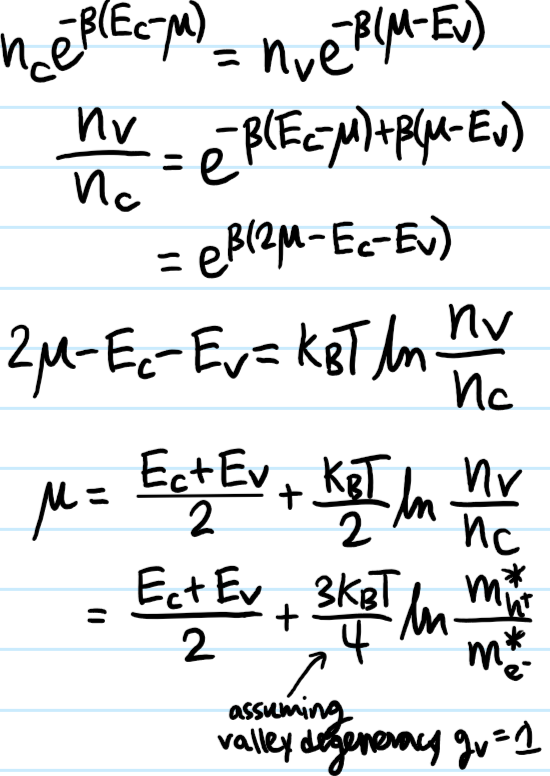 n_c e^{-β(E_c-μ)} = n_v e^{-β(μ-E_v)}
n_v/n_c = e^{-β(E_c-μ)+β(μ-E_v)}
= e^{β(2μ-E_c-E_v)}
2μ-E_c-E_v = k_BT ln n_v/n_c
μ = (E_c+E_v)/2 + k_BT/2 ln n_v/n_c
= (E_c+E_v)/2 + 3k_BT/4 ln m*_{h+}/m*_{e-}
assuming
valley degeneracy g_v=1